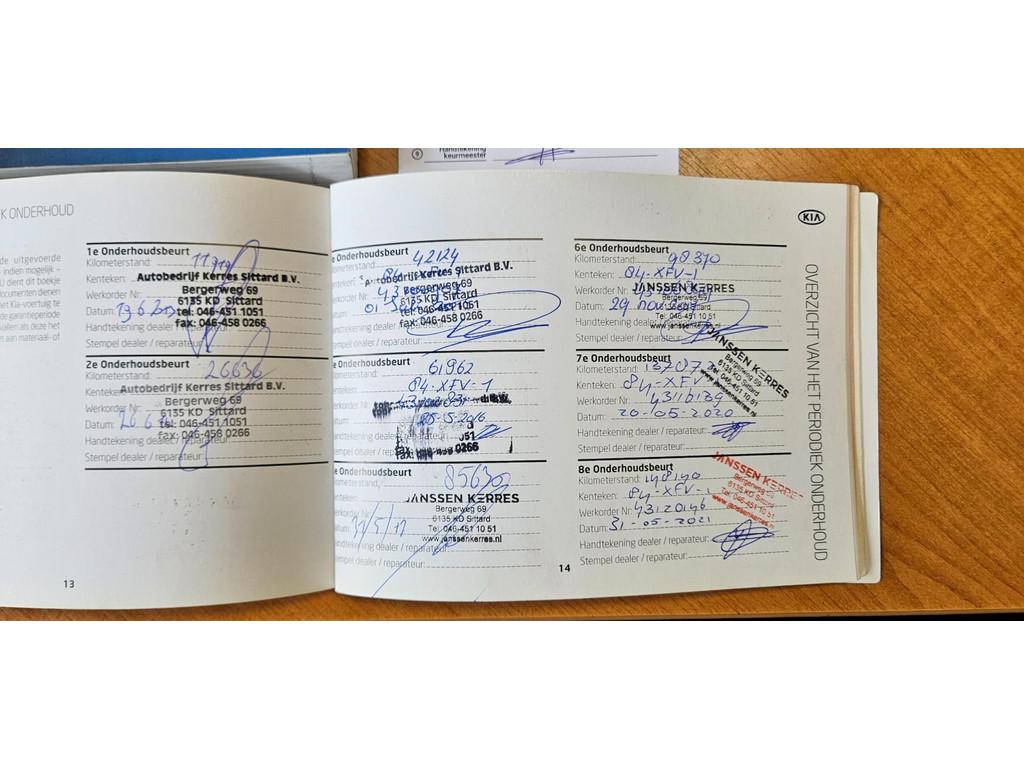 Handtekening
keurmeester
K ONDERHOUD
de uitgevoerde
indien mogelijk –
U dient dit boekje
documenten dienen
et Kia-voertuig te
de garantieperiode
akelen als deze het
t aan materiaal- of
1e Onderhoudsbeurt
Kilometerstand:
Kenteken:
Autobedrijf Kerres Sittard B.V.
Bergerweg 69
Werkorder Nr:
6135 KD Sittard
Datum:
tel: 046-451.1051
Handtekening dealer
fax: 046-458 0266
Stempel dealer / reparateur:
2e Onderhoudsbeurt
Kilometerstand: 26636
Autobedrijf Kerres Sittard B.V.
Kenteken:
Bergerweg 69
Werkorder Nr:
6135 KD Sittard
Datum:
tel: 046-451.1051
fax: 046-458 0266
Handtekening dealer / reparateur:
Stempel dealer / reparateur:
13
e Onderhoudsbeurt
Kilometerstand: 42124
Kenteken: 84-XFV-1
Autobedrijf Kerres Sittard B.V.
Bergerweg 69
Werkorder Nr:
6135 KD Sittard
Datum:
tel: 046-451.1051
fax: 046-458 0266
Handtekening dealer
Stempel dealer / reparateur:
e Onderhoudsbeurt
Kilometerstand: 61962
Kenteken: 84-XFV-1
Werkorder Nr:
Datum: 25-5-2016
Handtekening dealer
Stempel dealer / reparateur:
0266
e Onderhoudsbeurt
Kilometerstand: 85630
Kenteken:
JANSSEN KERRES
Bergerweg 69
Werkorder Nr:
6135 KD Sittard
Datum:
Tel: 046-451 10 51
www.janssenkerres.nl
Handtekening dealer / reparateur:
Stempel dealer / reparateur:
14
6e Onderhoudsbeurt
Kilometerstand: 98370
Kenteken: 84-XFV-1
JANSSEN KERRES
Werkorder Nr:
Bergerweg 69
6135 KD Sittard
Datum: 29 nov
Tel: 046-451 10 51
www.janssenkerres.nl
Handtekening dealer
Stempel dealer / reparateur:
7e Onderhoudsbeurt
Kilometerstand:
Kenteken: 84-XFV
Werkorder Nr: 43116139
Datum: 20-05-2020
Handtekening dealer / reparateur:
Stempel dealer / reparateur:
JANSSEN KERRES
Bergerweg 69
6135 KD Sittard
Tel: 046-451 10 51
www.janssenkerres.nl
8e Onderhoudsbeurt
Kilometerstand: 148140
Kenteken: 84-XFV-1
Werkorder Nr: 43120146
Datum: 31-05-2021
Handtekening dealer / reparateur:
Stempel dealer / reparateur:
JANSSEN KERRES
Bergerweg 69
6135 KD Sittard
Tel: 046-451 10 51
www.janssenkerres.nl
KIA
OVERZICHT VAN HET PERIODIEK ONDERHOUD